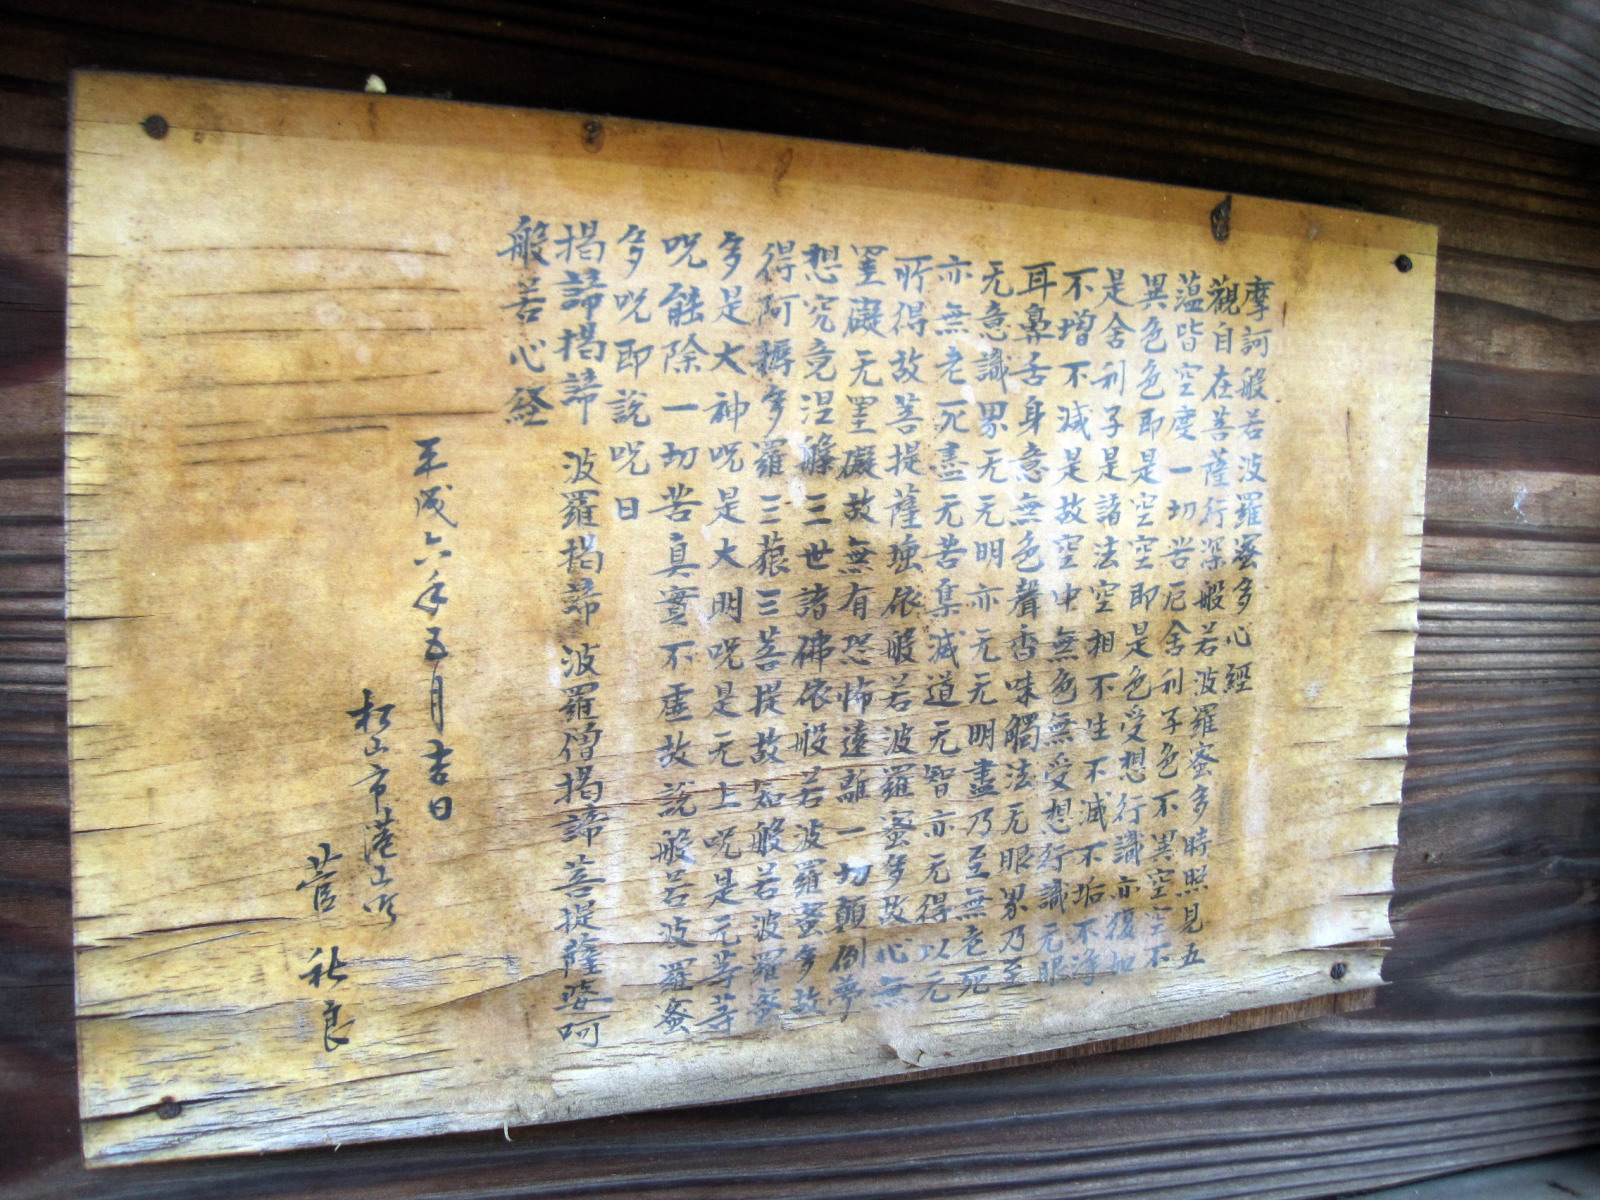 摩訶般若波羅蜜多心經
觀自在菩薩行深般若波羅蜜多時照見五
蘊皆空度一切苦厄舍利子色不異空空不
異色色即是空空即是色受想行識亦復如
是舍利子是諸法空相不生不滅不垢不淨
不增不減是故空中無色無受想行識无眼
耳鼻舌身意無色聲香味觸法无眼界乃至
无意識界无无明亦无无明盡乃至無老死
亦無老死盡无苦集滅道无智亦无得以无
所得故菩提薩埵依般若波羅蜜多故心無
罣礙无罣礙故無有恐怖遠離一切顛倒夢
想究竟涅槃三世諸佛依般若波羅蜜多故
得阿耨多羅三藐三菩提故知般若波羅蜜
多是大神呪是大明呪是无上呪是无等等
呪能除一切苦真實不虛故説般若波羅蜜
多呪即説呪曰
揭諦揭諦 波羅揭諦 波羅僧揭諦菩提薩婆呵
般若心経
平成六年五月吉日
松山市港山町
菅